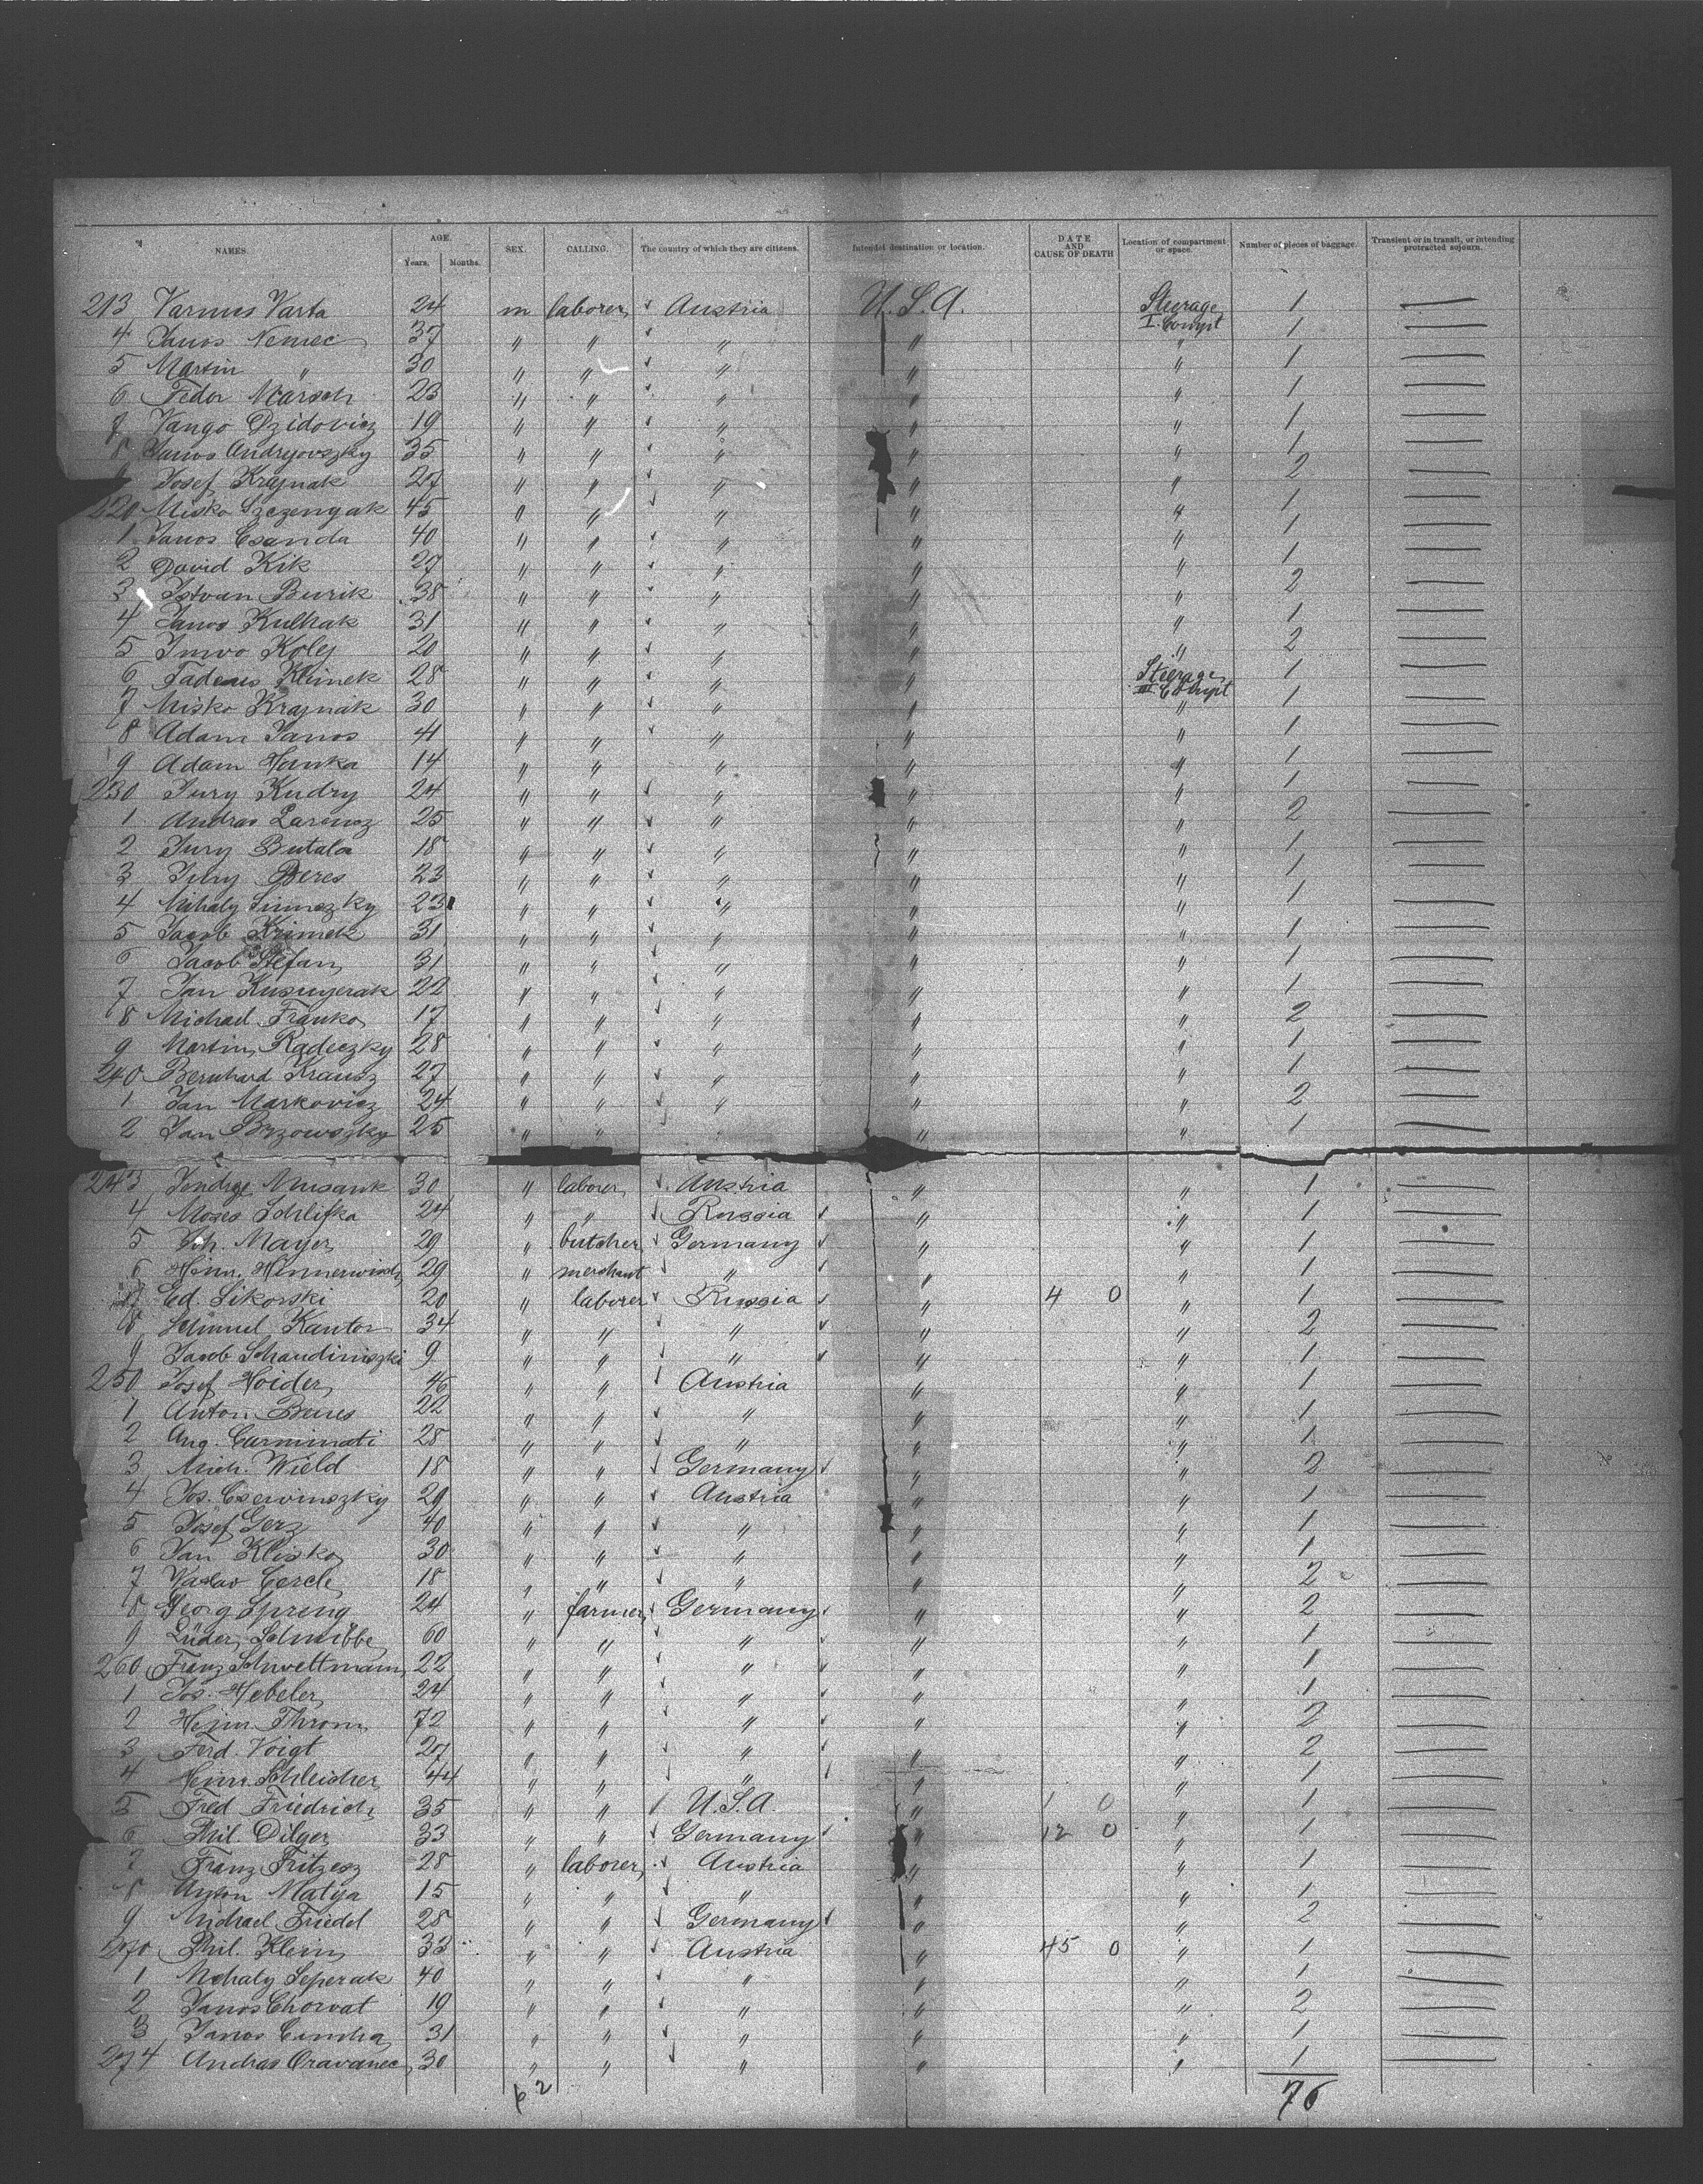 NAMES. AGE. Years. Months. SEX. CALLING. The country of which they are citizens. Intended destination or location. DATE AND CAUSE OF DEATH Location of compartment or space. Number of pieces of baggage. Transient or in transit, or intending protracted sojourn.
213 Varta 24 m laborer Austria U.S.A. Steerage I. Compt 1 —
4 Janos Nemec 37 " " " " " 1 —
5 Martin " 30 " " " " " 1 —
6 Fedor Marsch 23 " " " " " 1 —
7 Vango Dzidovicz 19 " " " " " 1 —
8 Janos Andryovszky 35 " " " " " 1 —
9 Josef Krajnak 27 " " " " " 2 —
220 Misko Szczengak 45 " " " " " 1 —
1 Janos Csanda 40 " " " " " 1 —
2 David Kik 27 " " " " " 1 —
3 Istvan Burik 38 " " " " " 2 —
4 Janos Kulhak 31 " " " " " 1 —
5 Koley 20 " " " " " 2 —
6 Tadeus Klimek 28 " " " " Steerage III Compt 1 —
7 Misko Krajnak 30 " " " " " 1 —
8 Adam Janos 41 " " " " " 1 —
9 Adam Hanka 14 " " " " " 1 —
230 Jury Kudry 24 " " " " " 1 —
1 Andras Larencz 25 " " " " " 2 —
2 Jury Butala 18 " " " " " 1 —
3 Jury Beres 23 " " " " " 1 —
4 Mihaly 23 " " " " " 1 —
5 Jacob Krimek 31 " " " " " 1 —
6 Jacob Stefan 31 " " " " " 1 —
7 Jan 22 " " " " " 1 —
8 Michael Franko 17 " " " " " 2 —
9 Martin Radeczky 28 " " " " " 1 —
240 Bernhard Krausz 27 " " " " " 1 —
1 Jan Markovicz 24 " " " " " 2 —
2 Jan Brzowszky 25 " " " " " 1 —
243 Musank 30 " laborer Austria " " 1 —
4 Moses Schlifka 24 " " Russia " " 1 —
5 Joh. Mayer 29 " butcher Germany " " 1 —
6 Heinr. Hennerwisch 29 " merchant " " " 1 —
7 Ed. Sikorski 20 " laborer Russia " 4 0 " 1 —
8 Schmuel Kantor 34 " " " " " 2 —
9 Jacob Schaudiniszki 9 " " " " " 1 —
250 Josef Hoider 46 " " Austria " " 1 —
1 Anton Benes 22 " " " " " 1 —
2 Aug. Carminati 28 " " " " " 1 —
3 Mich. Wield 18 " " Germany " " 2 —
4 Jos. Cserwinszky 29 " " Austria " " 1 —
5 Josef Gerz 40 " " " " " 1 —
6 Jan Klisko 30 " " " " " 1 —
7 Vaslav Cerch 18 " " " " " 2
8 Georg Spreng 24 " farmer Germany " " 2 —
9 Lüder Schnibbe 60 " " " " " 1 —
260 Franz Schwettmann 22 " " " " " 1 —
1 Jos. Hebeler 24 " " " " " 1 —
2 Heinr. Throm 72 " " " " " 2 —
3 Ferd. Voigt 27 " " " " " 2 —
4 Heinr. Schleicher 44 " " " " " 1 —
5 Fred Friedrich 35 " " U.S.A. " 1 0 " 1 —
6 Phil. Dilger 33 " " Germany " 12 0 " 1 —
7 Franz Fritzesz 28 " laborer Austria " " 1 —
8 Anton Matya 15 " " " " " 1 —
9 Michael Friedel 28 " " Germany " " 2 —
270 Phil. Klein 33 " " Austria " 45 0 " 1 —
1 Mihaly Seperak 40 " " " " " 1 —
2 Janos Chorvat 19 " " " " " 2 —
3 Janos 31 " " " " " 1 —
274 Andras Oravanec 30 " " " " " 1 —
62 76